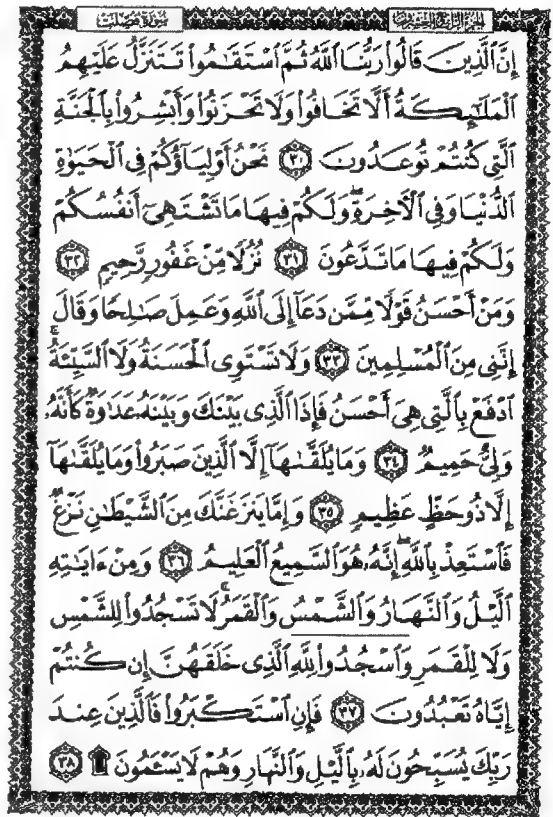 سورة فصلت
الجزء الرابع والعشرون
إِنَّ ٱلَّذِينَ قَالُوا۟ رَبُّنَا ٱللَّهُ ثُمَّ ٱسْتَقَـٰمُوا۟ تَتَنَزَّلُ عَلَيْهِمُ
ٱلْمَلَـٰٓئِكَةُ أَلَّا تَخَافُوا۟ وَلَا تَحْزَنُوا۟ وَأَبْشِرُوا۟ بِٱلْجَنَّةِ
ٱلَّتِى كُنتُمْ تُوعَدُونَ ٣٠ نَحْنُ أَوْلِيَآؤُكُمْ فِى ٱلْحَيَوٰةِ
ٱلدُّنْيَا وَفِى ٱلْـَٔاخِرَةِ ۖ وَلَكُمْ فِيهَا مَا تَشْتَهِىٓ أَنفُسُكُمْ
وَلَكُمْ فِيهَا مَا تَدَّعُونَ ٣١ نُزُلًا مِّنْ غَفُورٍ رَّحِيمٍ ٣٢
وَمَنْ أَحْسَنُ قَوْلًا مِّمَّن دَعَآ إِلَى ٱللَّهِ وَعَمِلَ صَـٰلِحًا وَقَالَ
إِنَّنِى مِنَ ٱلْمُسْلِمِينَ ٣٣ وَلَا تَسْتَوِى ٱلْحَسَنَةُ وَلَا ٱلسَّيِّئَةُ ۚ
ٱدْفَعْ بِٱلَّتِى هِىَ أَحْسَنُ فَإِذَا ٱلَّذِى بَيْنَكَ وَبَيْنَهُۥ عَدَٰوَةٌ كَأَنَّهُۥ
وَلِىٌّ حَمِيمٌ ٣٤ وَمَا يُلَقَّىٰهَآ إِلَّا ٱلَّذِينَ صَبَرُوا۟ وَمَا يُلَقَّىٰهَآ
إِلَّا ذُو حَظٍّ عَظِيمٍ ٣٥ وَإِمَّا يَنزَغَنَّكَ مِنَ ٱلشَّيْطَـٰنِ نَزْغٌ
فَٱسْتَعِذْ بِٱللَّهِ ۖ إِنَّهُۥ هُوَ ٱلسَّمِيعُ ٱلْعَلِيمُ ٣٦ وَمِنْ ءَايَـٰتِهِ
ٱلَّيْلُ وَٱلنَّهَارُ وَٱلشَّمْسُ وَٱلْقَمَرُ ۚ لَا تَسْجُدُوا۟ لِلشَّمْسِ
وَلَا لِلْقَمَرِ وَٱسْجُدُوا۟ لِلَّهِ ٱلَّذِى خَلَقَهُنَّ إِن كُنتُمْ
إِيَّاهُ تَعْبُدُونَ ٣٧ فَإِنِ ٱسْتَكْبَرُوا۟ فَٱلَّذِينَ عِندَ
رَبِّكَ يُسَبِّحُونَ لَهُۥ بِٱلَّيْلِ وَٱلنَّهَارِ وَهُمْ لَا يَسْـَٔمُونَ ۩ ٣٨